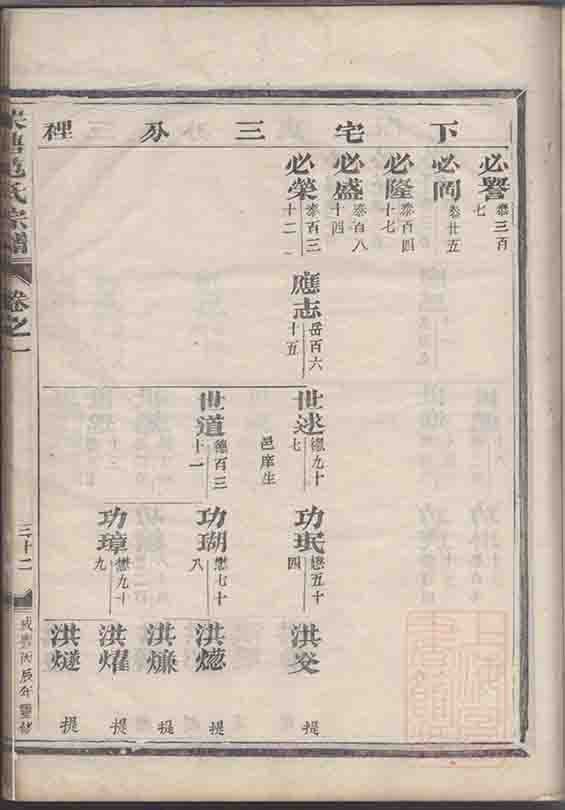 下宅三分裡
必譽 泰三百七
必岡 泰廿五
必隆 泰百四十七
必盛 泰百八十四
必榮 泰百三十二
應志 岳百六十五
世述 德九十七
邑庠生
世道 德百三十一
功珉 懋五十四
功瑚 懋七十八
功璋 懋九十九
洪交 提
洪㷰 提
洪㷠 提
洪燿 提
洪燧 提
氏宗譜
卷之一
三十二
咸豐丙辰年重修